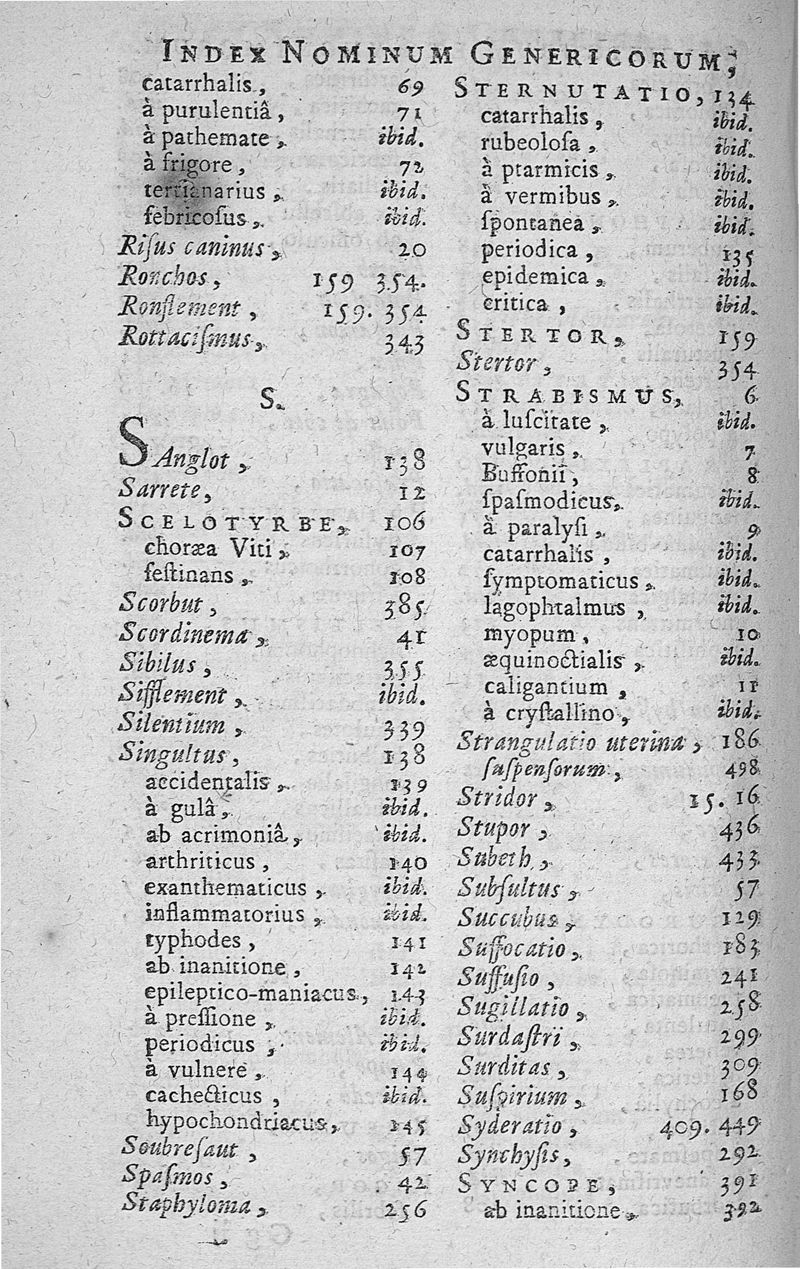 INDEX NOMINUM GENERICORUM,
catarrhalis, 69
à purulentiâ, 71
à pathemate, ibid.
à frigore, 72
tertianarius, ibid.
febricoſus, ibid.
Riſus caninus, 20
Ronchos, 159 354.
Ronflement, 159. 354
Rottaciſmus, 343
S.
SAnglot, 138
Sarrete, 12
SCELOTYRBE, 106
choræa Viti, 107
feſtinans, 108
Scorbut, 385
Scordinema, 41
Sibilus, 355
Sifflement, ibid.
Silentium, 339
Singultus, 138
accidentalis, 139
à gulâ, ibid.
ab acrimoniâ, ibid.
arthriticus, 140
exanthematicus, ibid.
inflammatorius, ibid.
typhodes, 141
ab inanitione, 142
epileptico-maniacus, 143
à preſſione, ibid.
periodicus, ibid.
à vulnere, 144
cachecticus, ibid.
hypochondriacus, 145
Soubreſaut, 57
Spaſmos, 42
Staphyloma, 256
STERNUTATIO, 134
catarrhalis, ibid.
rubeoloſa, ibid.
à ptarmicis, ibid.
à vermibus, ibid.
ſpontanea, ibid.
periodica, 135
epidemica, ibid.
critica, ibid.
STERTOR, 159
Stertor, 354
STRABISMUS, 6
à luſcitate, ibid.
vulgaris, 7
Buffonii, 8
ſpaſmodicus, ibid.
à paralyſi, 9
catarrhalis, ibid.
ſymptomaticus, ibid.
lagophtalmus, ibid.
myopum, 10
æquinoctialis, ibid.
caligantium, 11
à cryſtallino, ibid.
Strangulatio uterina, 186
ſuſpenſorum, 498
Stridor, 15. 16
Stupor, 436
Subeth, 433
Subſultus, 57
Succubus, 129
Suffocatio, 183
Suffuſio, 241
Sugillatio, 258
Surdaſtri, 299
Surditas, 309
Suſpirium, 168
Syderatio, 409. 449
Synchyſis, 292
SYNCOPE, 391
ab inanitione, 392